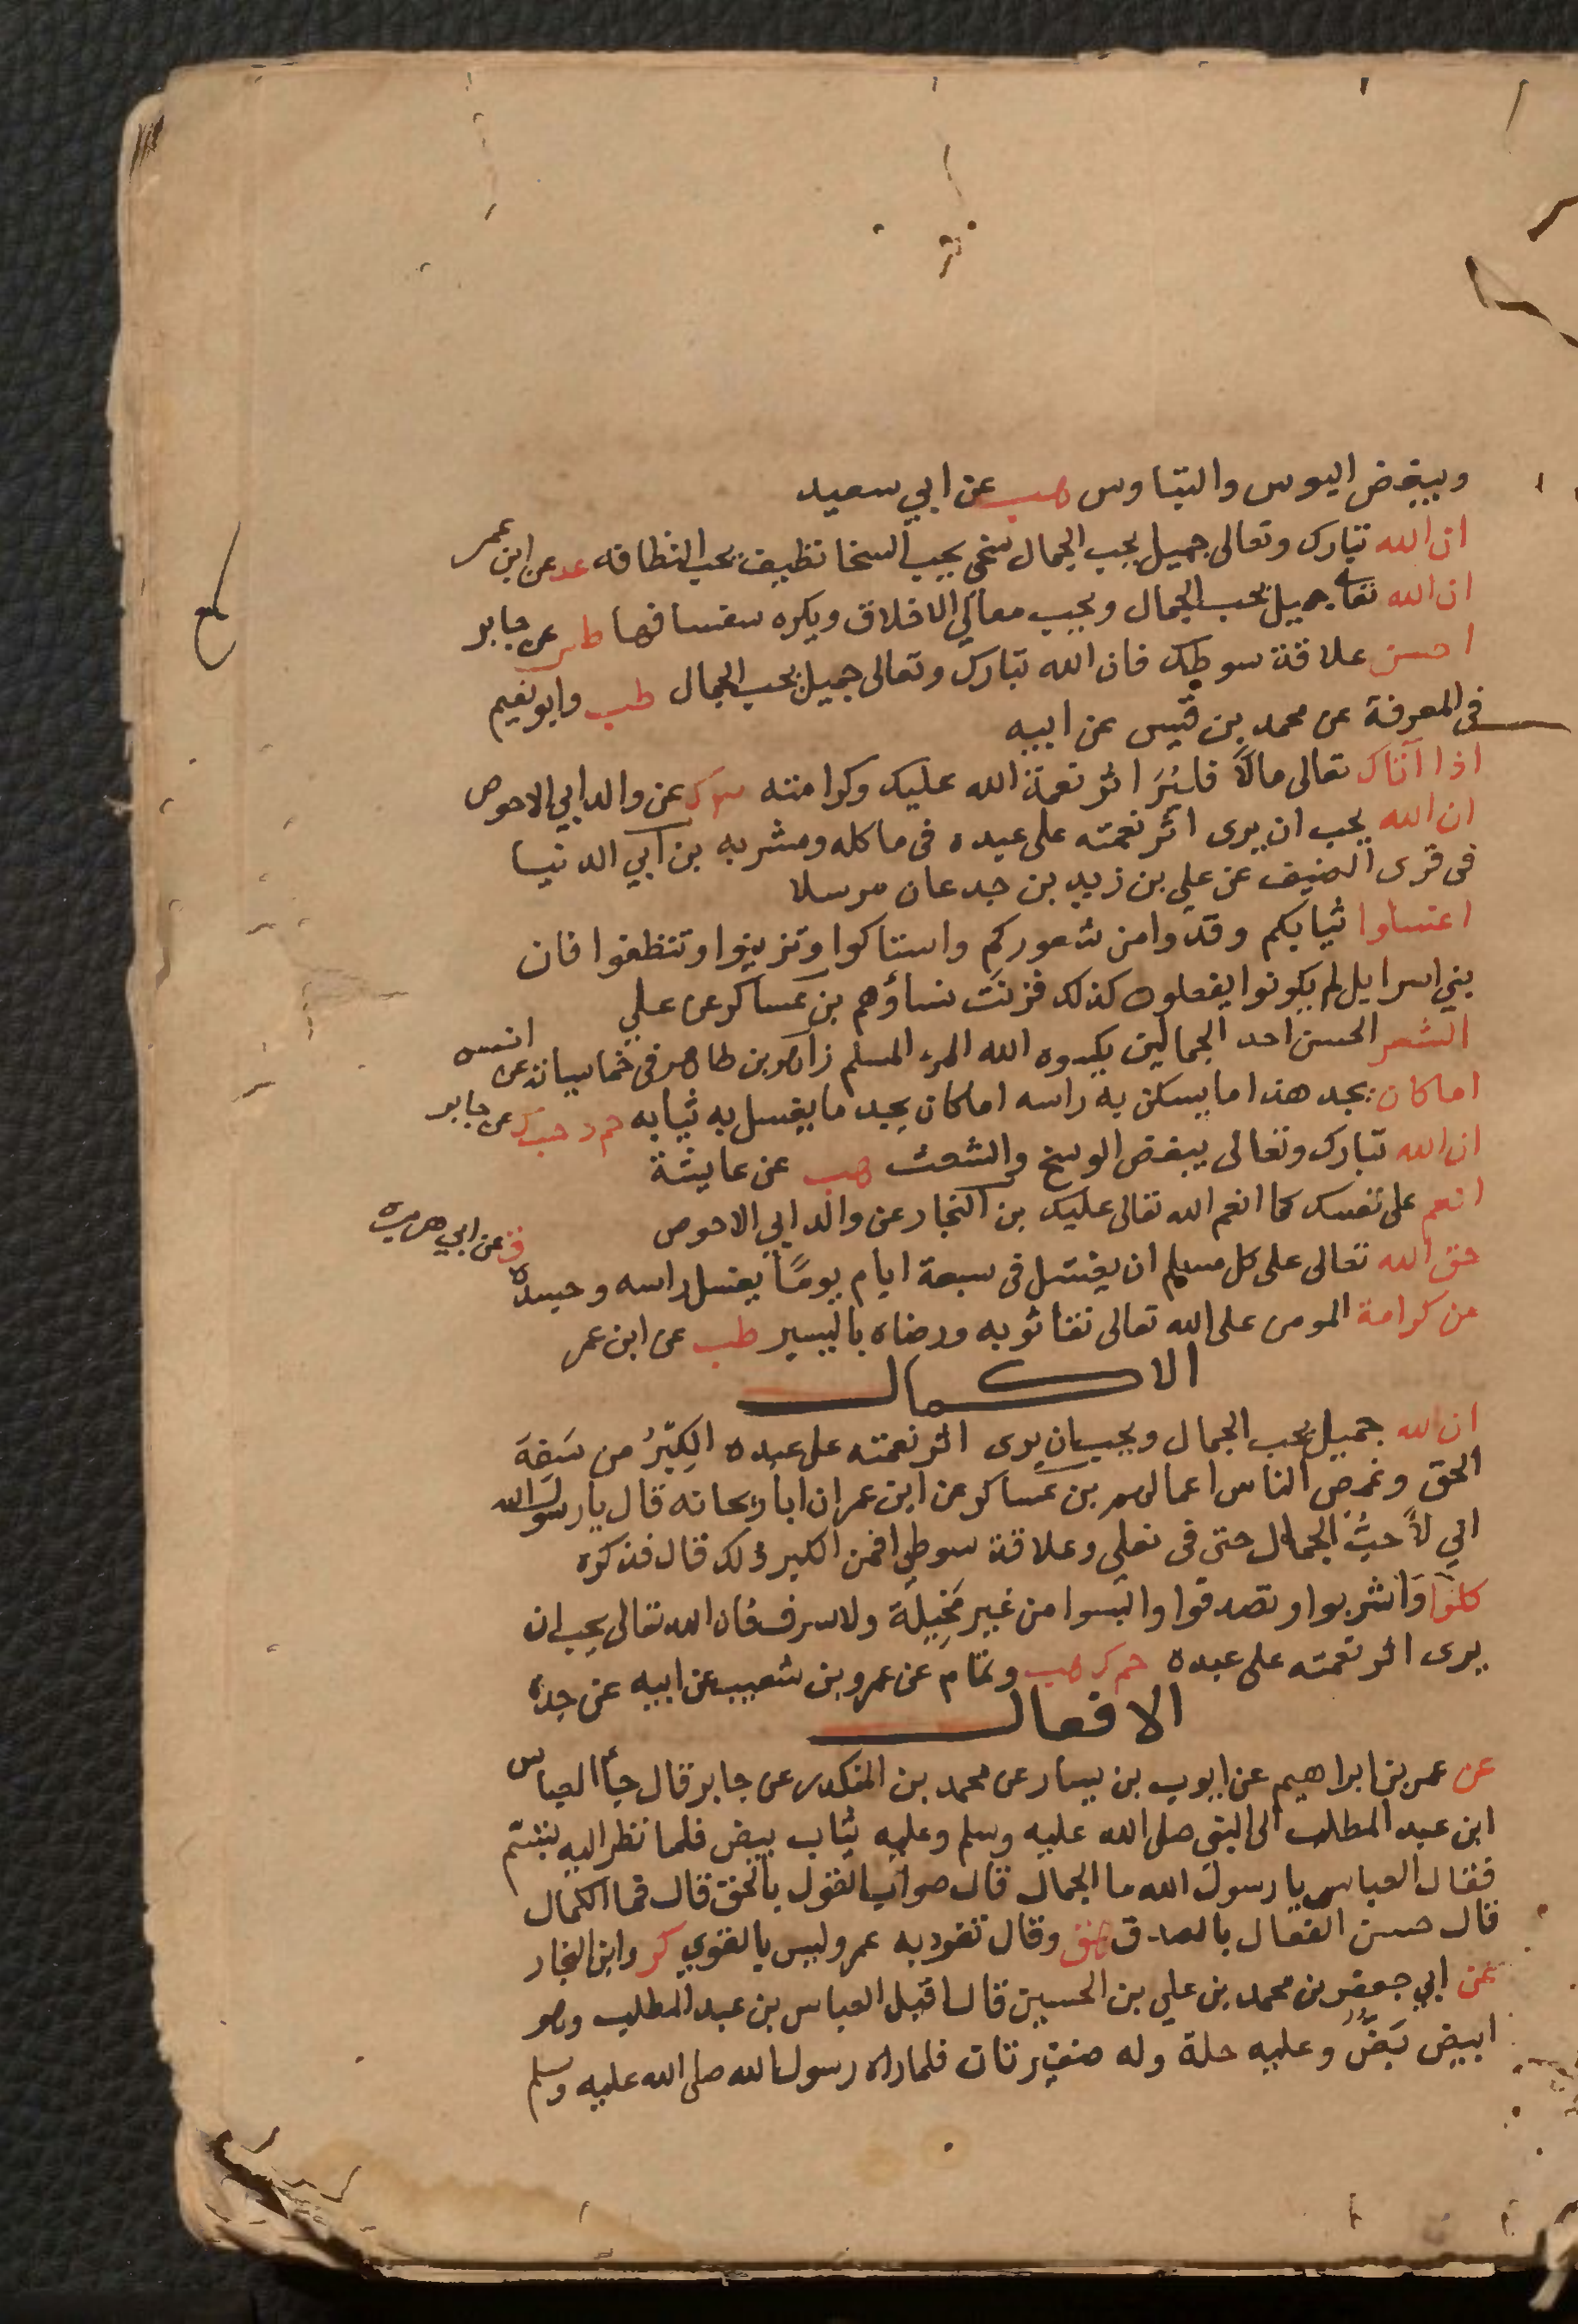 ويبغض البوس والتباوس هب عن ابي سعيد
ان الله تبارك وتعالى جميل يحب الجمال سخي يحب السخا نظيف يحب النظافه عد عن ابن عمر
ان الله تعالى جميل يحب الجمال ويحب معالي الاخلاق ويكره سفسافها طس عن جابر
احسن علاقة سوطك فان الله تبارك وتعالى جميل يحب الجمال طب وابو نعيم
في المعرفة عن محمد بن قيس عن ابيه
اذا آتاك تعالى مالاً فليُرَ اثر نعمة الله عليك وكرامته ك عن والد ابي الاحوص
ان الله يحب ان يرى اثر نعمته على عبده في ماكله ومشربه بن ابي الدنيا
في قرى الضيف عن علي بن زيد بن جدعان مرسلا
اغسلوا ثيابكم وقدوا من شعوركم واستاكوا وتزينوا وتنظفوا فان
بني اسرايل لم يكونوا يفعلون كذلك فزنَت نساؤهم بن عساكر عن علي
الشعر الحسن احد الجمالين يكسوه الله المرء المسلم زاهر بن طاهر في خماسياته عن انس
اما كان يجد هذا ما يسكن به راسه اما كان يجد ما يغسل به ثيابه حم د حب ك عن جابر
ان الله تبارك وتعالى يبغض الوسخ والشعث هب عن عايشة
انعم على نفسك كما انعم الله تعالى عليك بن النجار عن والد ابي الاحوص
حق الله تعالى على كل مسلم ان يغتسل في سبعة ايام يومًا يغسل راسه وجسده ق عن ابي هريرة
من كرامة المومن على الله تعالى نقا ثوبه ورضاه باليسير طب عن ابن عمر
الاكمال
ان الله جميل يحب الجمال ويحب ان يرى اثر نعمته على عبده الكِبْرُ من سَفِهَ
الحق وغمص الناس اعمالهم بن عساكر عن ابن عمر ان ابا ريحانه قال يا رسول الله
اني لأُحبُّ الجمال حتى في نعلي وعلاقة سوطي افمن الكبر ذلك قال فذكره
كلوا وَاشربوا وتصدقوا والبسوا من غير مَخِيلَة ولا سرف فان الله تعالى يحب ان
يرى اثر نعمته على عبده حم ك هب وتمام عن عمرو بن شعيب عن ابيه عن جده
الافعال
عن عمر بن ابراهيم عن ايوب بن يسار عن محمد بن المنكدر عن جابر قال جاء العباس
ابن عبد المطلب الى النبي صلى الله عليه وسلم وعليه ثياب بيض فلما نظر اليه تبسم
فقال العباس يا رسول الله ما الجمال قال صواب القول بالحق قال فما الكمال
قال حسن الفعال بالصدق هق وقال تفرد به عمر وليس بالقوي كر وابن النجار
عن ابي جعفر بن محمد بن علي بن الحسين قال اقبل العباس بن عبد المطلب وهو
ابيض بَضٌّ وعليه حلة وله ضفيرتان فلما راه رسول الله صلى الله عليه وسلم